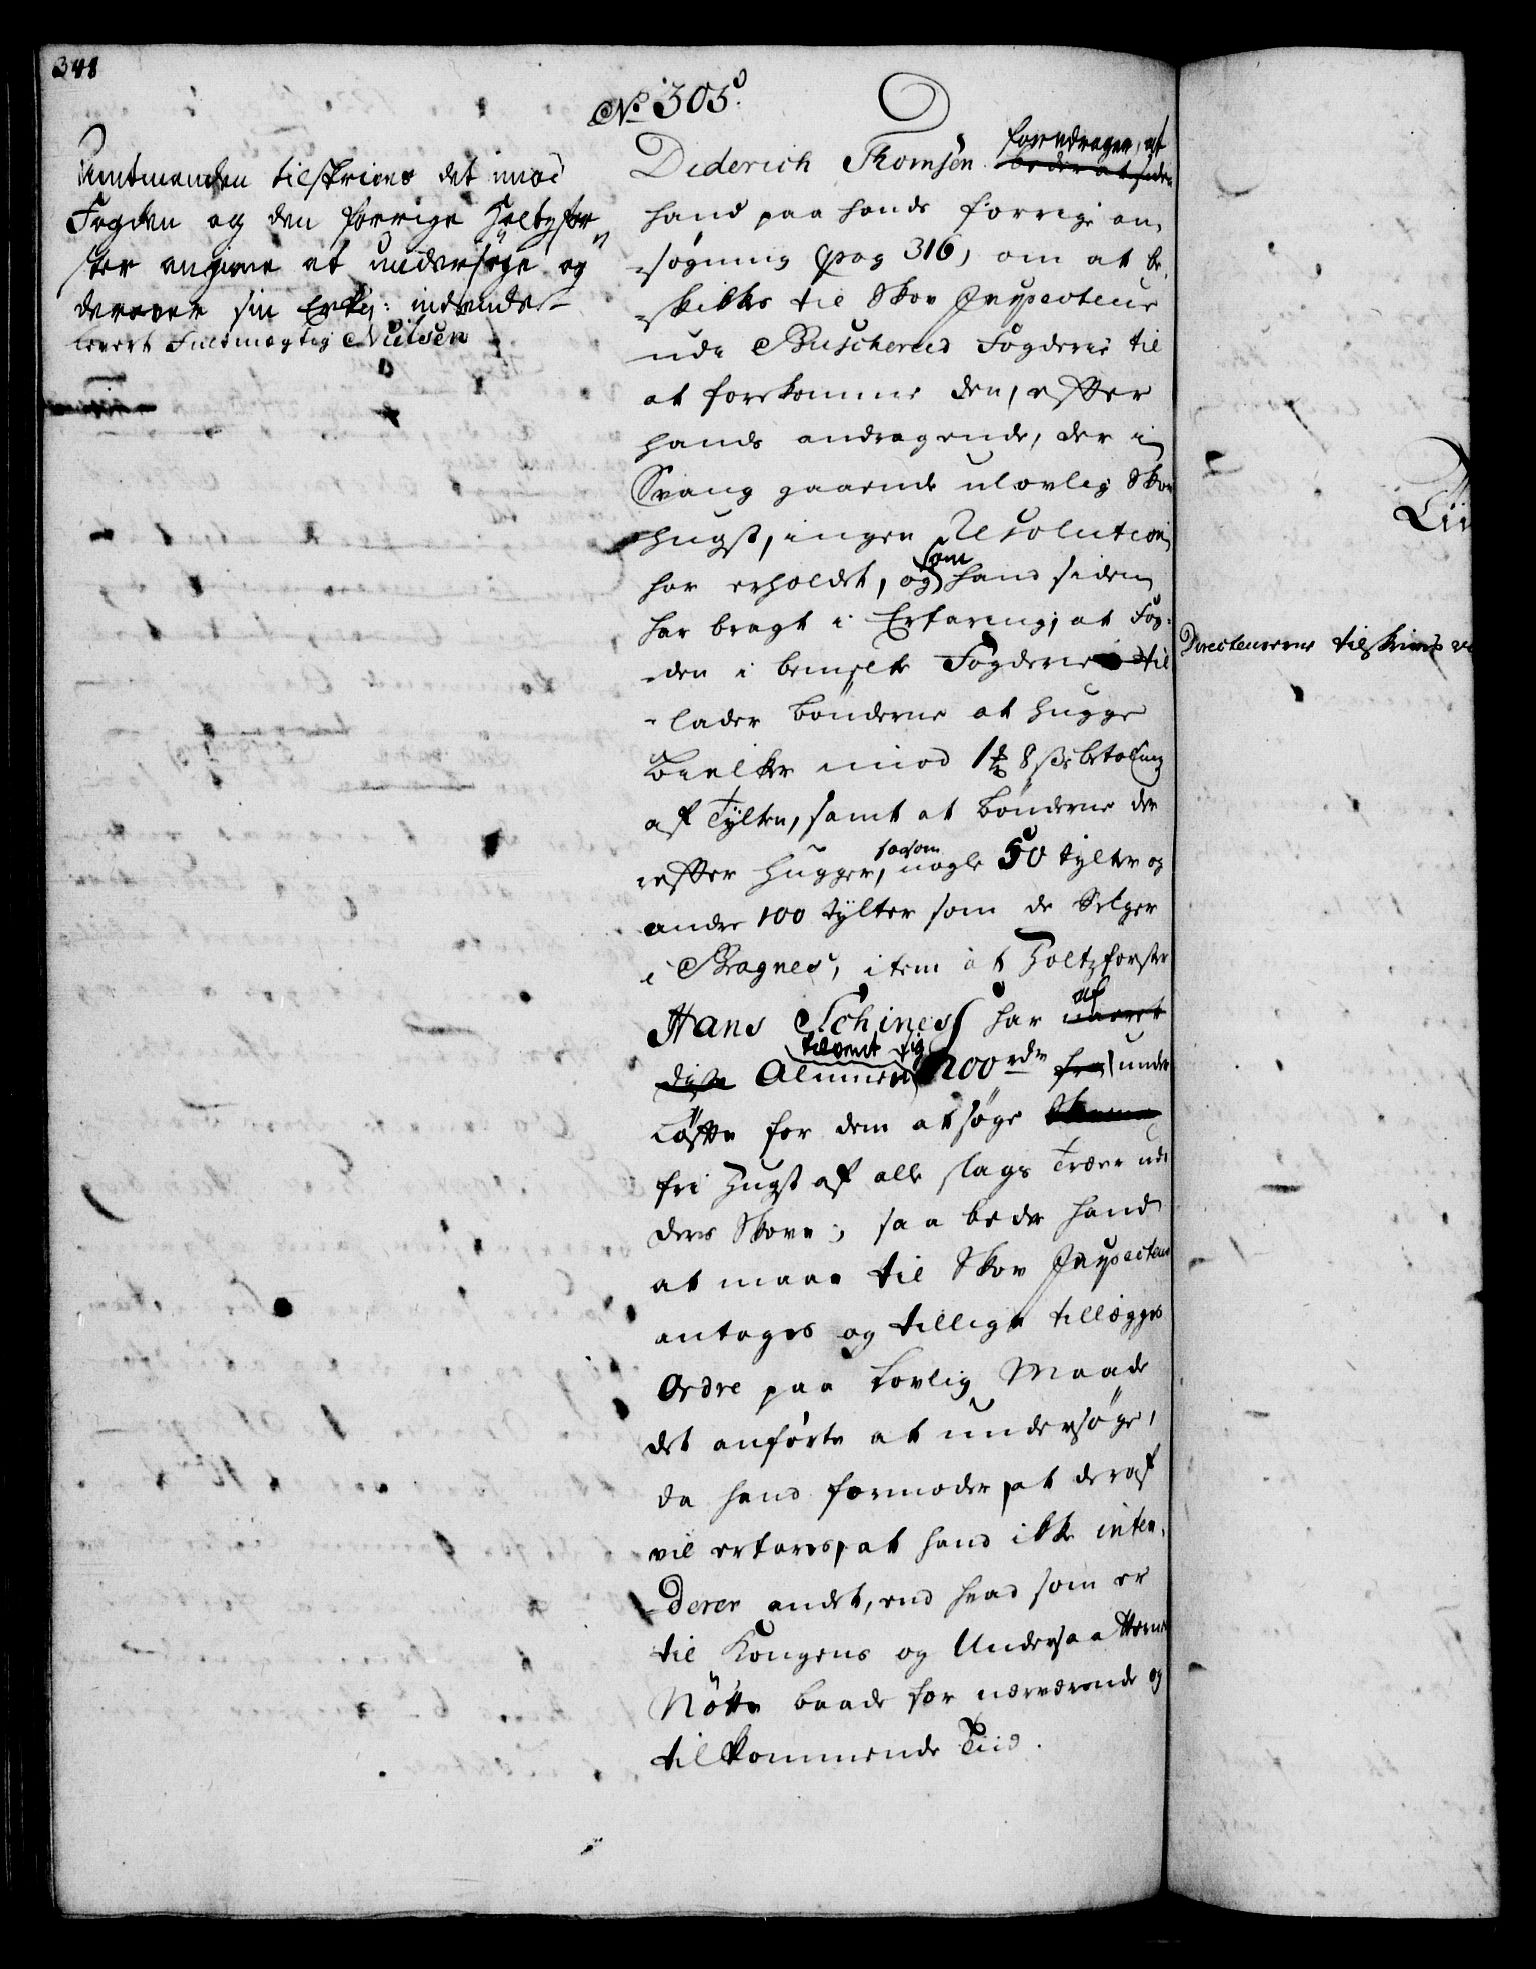 348
No 305.
Amtmanden tilskrives det imod
Fogden og den forrige Holtzfor-
ster angivne at undersøge og
derover sin Erkl: indsende
levert Fuldmægtig Nielsen
Diderich Thomsen foredrager, at
beder at siden
hand paa hands forrige an-
søgning (pag 316) om at be-
skikkes til Skov Inspecteur
udi Buscheruds Fogderie til
at forekomme den, efter
hands andragende, der i
Svang gaaende ulovlig Skov
Hugst, ingen Resolution
har erholdet, og som hand siden
har bragt i Erfaring, at Fog-
den i bemelte Fogderie til
lader bønderne at hugge
Bielker imod 1 8 s betaling
af Tylten, samt at bønderne der
efter Hugger, saasom nogle 50 tylter og
andre 100 tylter som de Selger
i Bragnes, item at Holtzforster
Hans Schines har af
Almuen tilvent sig 200 rdr under
Løffte for dem at søge
fri Hugst af alle slags Træer udi
deres Skove; saa beder hand
at maae til Skov Inspecteur
antages og tillige tillegges
Ordre paa Lovlig Maade
det anførte at undersøge,
da hand formoder, at deraf
vil erfares, at hand ikke inten-
derer andet, end hvad som er
til Kongens og Undersaatternes
Nøtte baade for nærværende og
tilkommende Tiid.
Directeurerne tilskrives